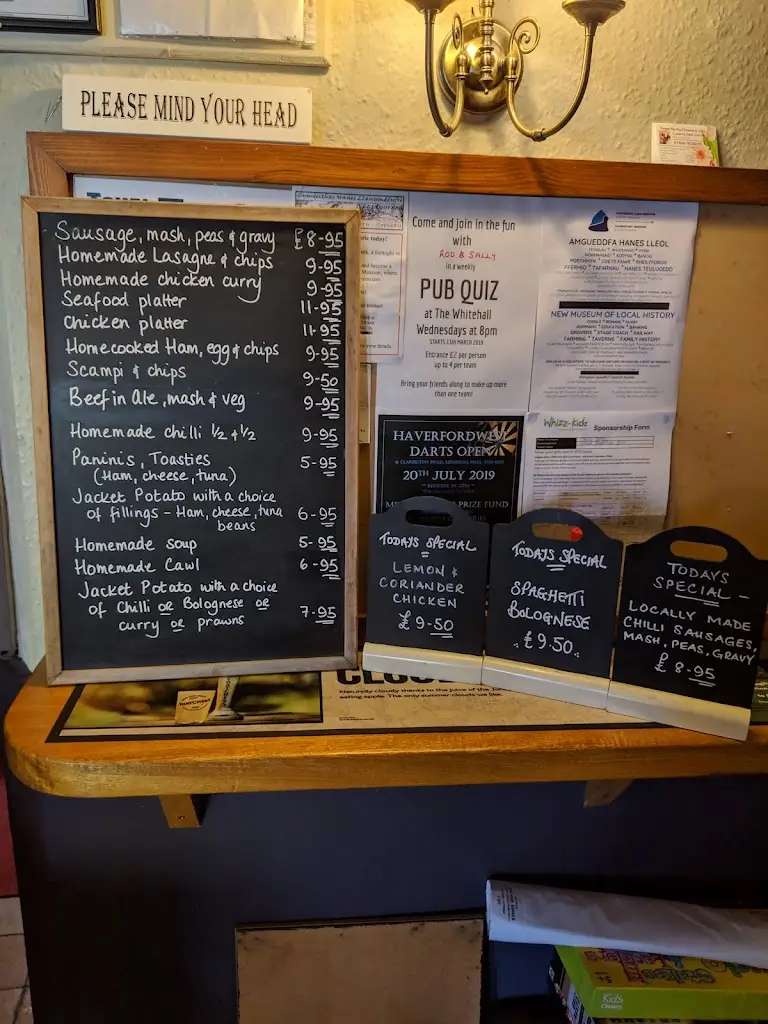 PLEASE MIND YOUR HEAD
Sausage, mash, peas & gravy £8-95
Homemade Lasagne & chips 9-95
Homemade chicken curry 9-95
Seafood platter 11-95
Chicken platter 11-95
Homecooked Ham, egg & chips 9-95
Scampi & chips 9-50
Beef in Ale, mash & veg 9-95
Homemade chilli 1/2 & 1/2 9-95
Paninis, Toasties 5-95
(Ham, cheese, tuna)
Jacket Potato with a choice
of fillings - Ham, cheese, tuna 6-95
beans
Homemade soup 5-95
Homemade Cawl 6-95
Jacket Potato with a choice
of Chilli or Bolognese or 7-95
curry or prawns
Come and join in the fun
with
ROD & SALLY
in a weekly
PUB QUIZ
at The Whitehall
Wednesdays at 8pm
STARTS 13TH MARCH 2019
Entrance £2 per person
up to 4 per team
Bring your friends along to make up more
than one team!
AMGUEDDFA HANES LLEOL
NEW MUSEUM OF LOCAL HISTORY
FARMING * TAVERNS * FAMILY HISTORY
HAVERFORDWEST
DARTS OPEN
20TH JULY 2019
PRIZE FUND
Whizz-Kidz Sponsorship Form
TODAYS SPECIAL
LEMON &
CORIANDER
CHICKEN
£9-50
TODAYS SPECIAL
SPAGHETTI
BOLOGNESE
£9.50
TODAYS
SPECIAL -
LOCALLY MADE
CHILLI SAUSAGES,
MASH, PEAS, GRAVY
£8.95
Naturally cloudy thanks to the juice of the
eating apple. The only summer clouds we like.
Kids